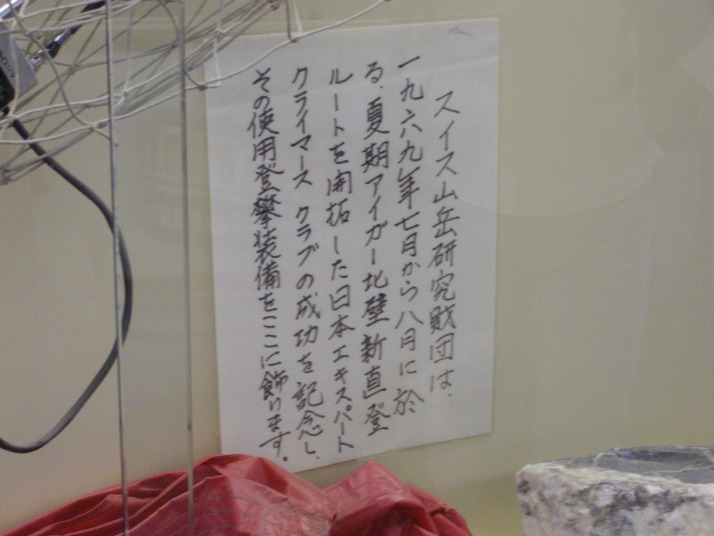 スイス山岳研究財団は、
一九六九年七月から八月に於
る、夏期アイガー北壁新直登
ルートを開拓した日本エキスパート
クライマース クラブの成功を記念し、
その使用登攀装備をここに飾ります。